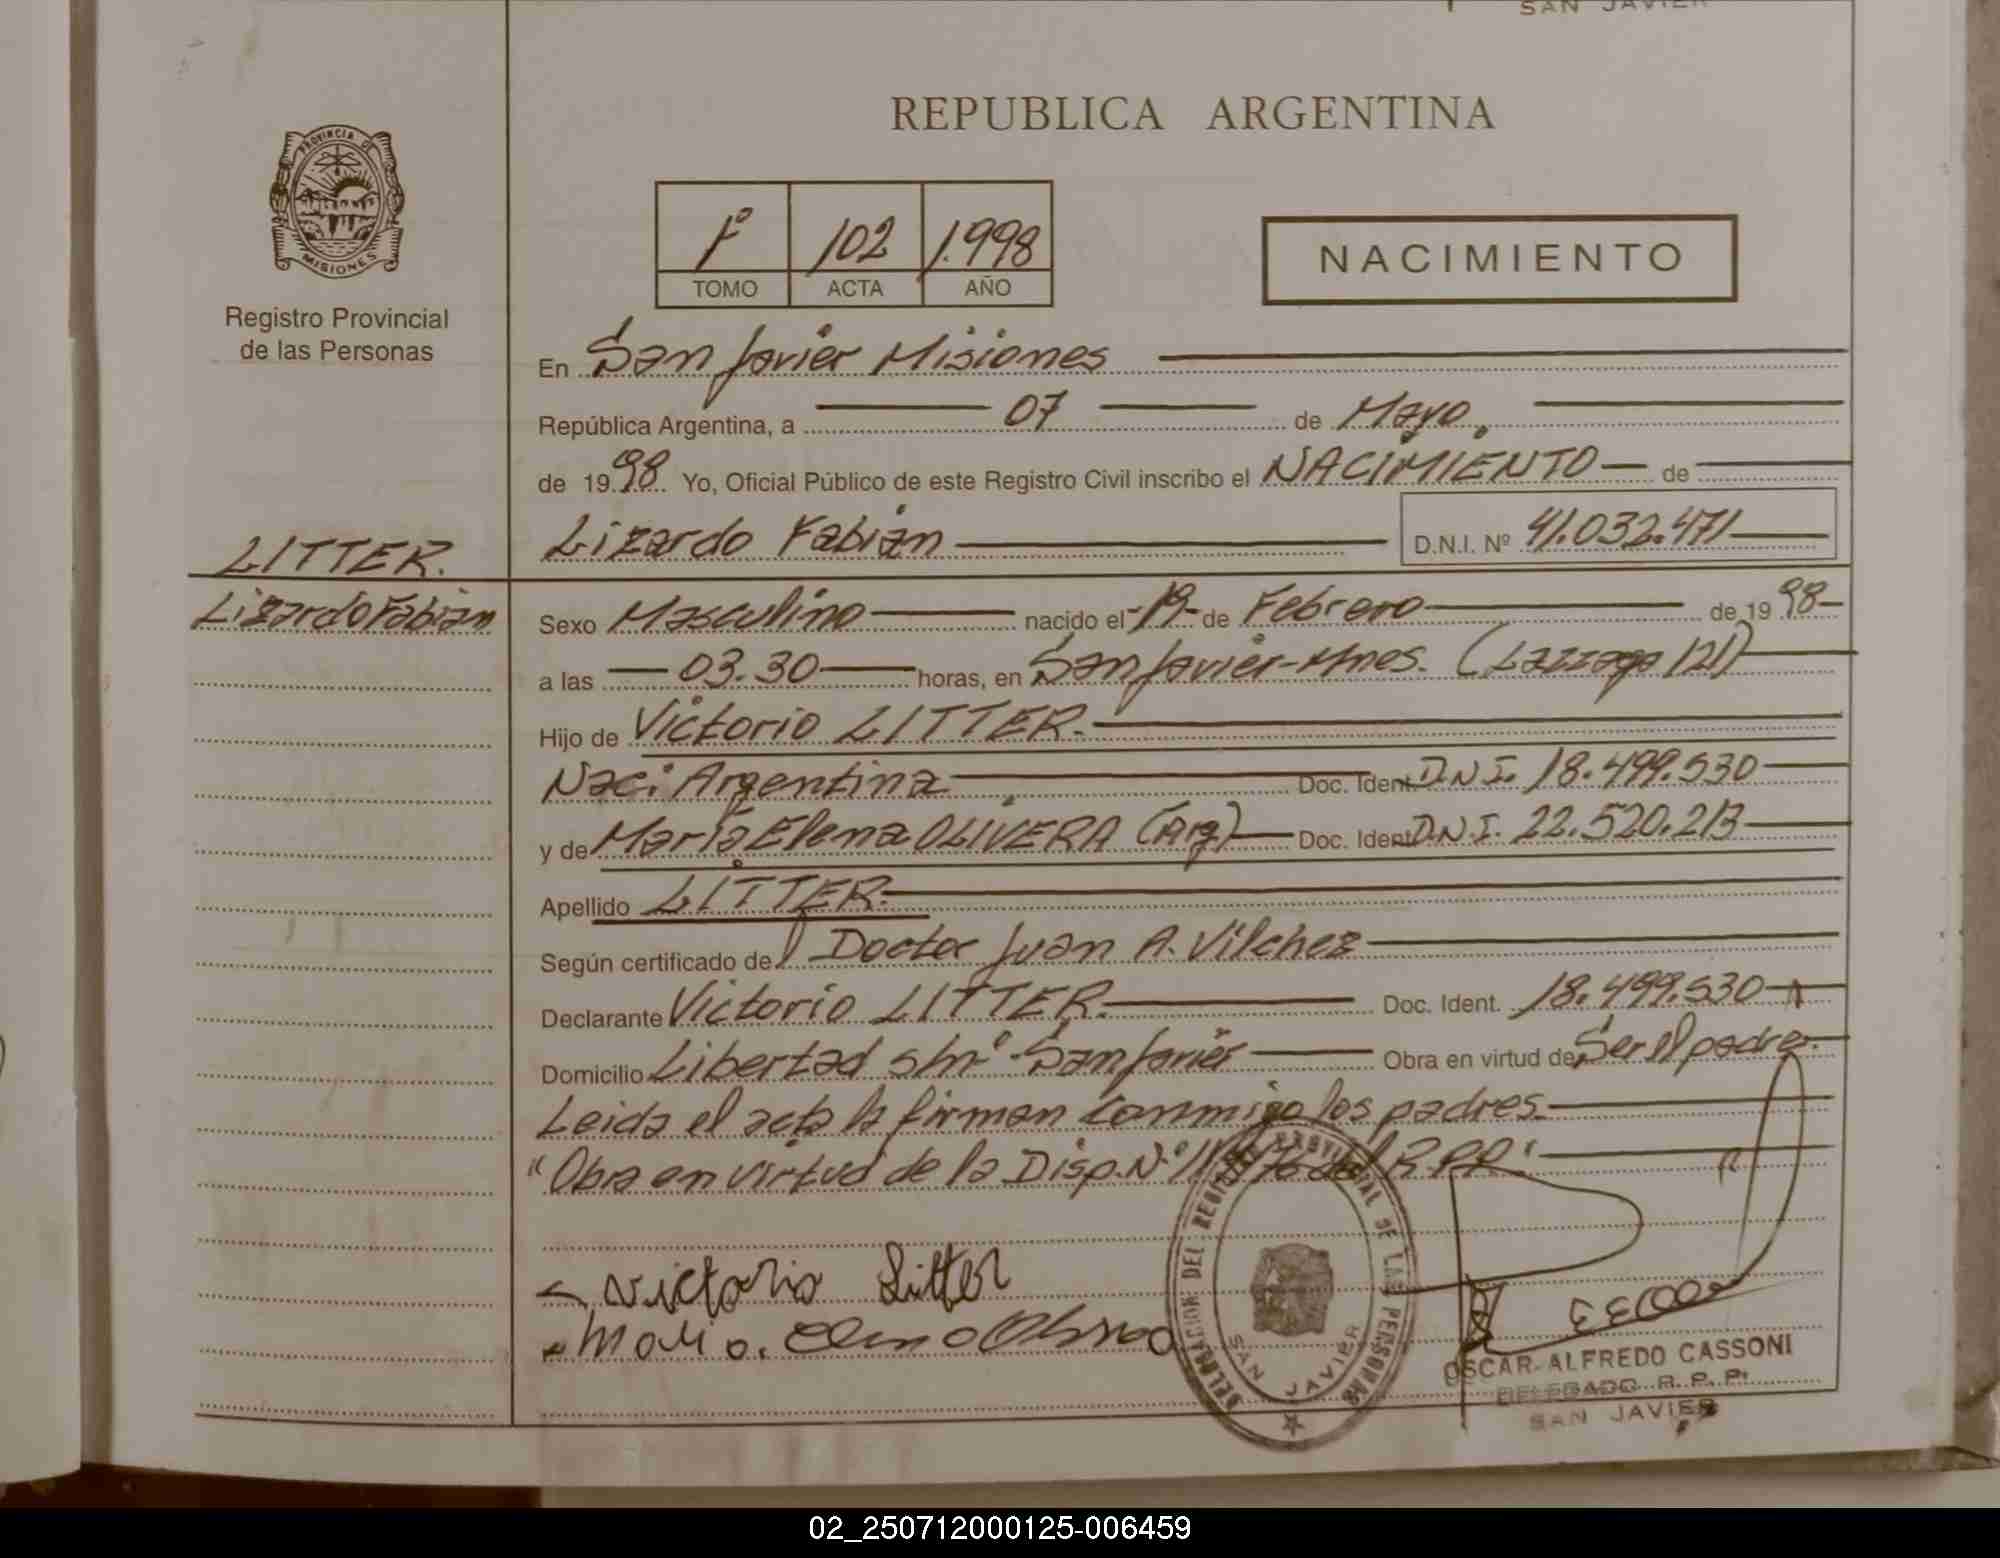 SAN JAVIER
REPUBLICA ARGENTINA
PROVINCIA DE
MISIONES
Registro Provincial
de las Personas
1º 102 1.998
TOMO ACTA AÑO
NACIMIENTO
En San Javier Misiones
República Argentina, a 07 de Mayo
de 19 98 Yo, Oficial Público de este Registro Civil inscribo el NACIMIENTO de
Lizardo Fabián D.N.I. Nº 41.032.471
LITTER.
Lizardo Fabian
Sexo Masculino nacido el -19- de Febrero de 19 98-
a las 03.30 horas, en San Javier-Mnes. (Lazzaga 121)
Hijo de Victorio LITTER.
Naci Argentina Doc. Ident D.N.I. 18.499.530
y de María Elena OLIVERA (Arg) Doc. Ident D.N.I. 22.520.213
Apellido LITTER.
Según certificado del Doctor Juan A. Vilchez
Declarante Victorio LITTER. Doc. Ident. 18.499.530
Domicilio Libertad s/nº San Javier Obra en virtud de Ser el padre.
Leida el acta la firman conmigo los padres.
"Obra en virtud de la Disp. Nº del R.P.P."
Victorio Litter
Maria. Elena
DELEGACION DEL REGISTRO PROVINCIAL DE LAS PERSONAS
SAN JAVIER
OSCAR ALFREDO CASSONI
DELEGADO R. P. P.
SAN JAVIER
02_250712000125-006459